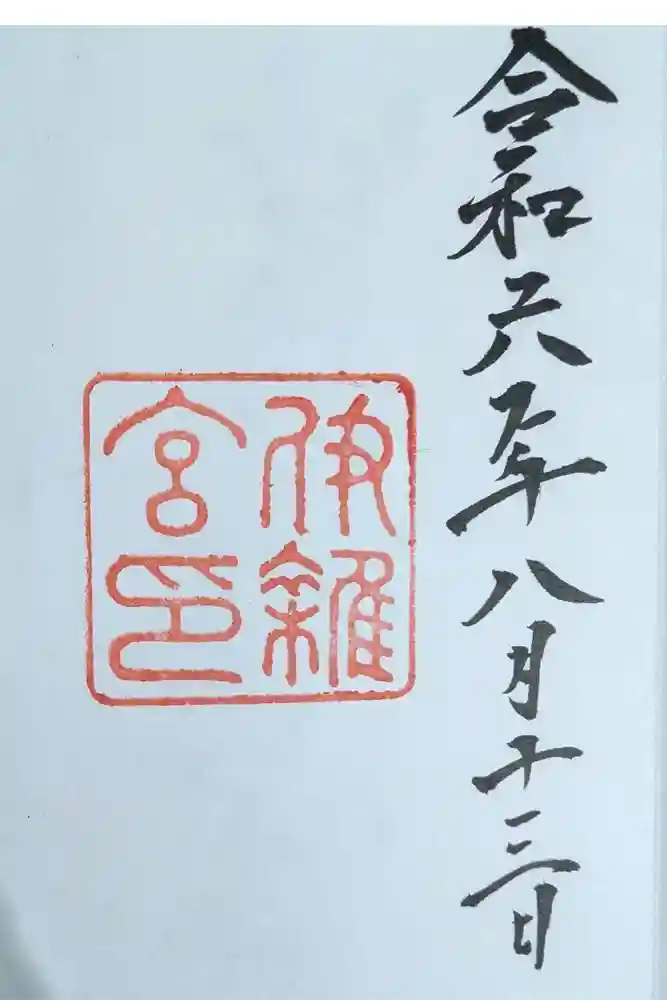 令和六年八月十三日
伊雜
宮印